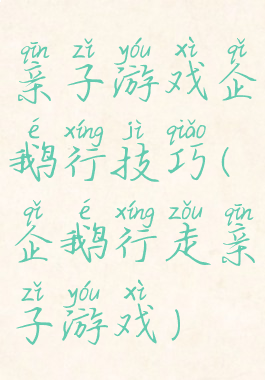 qīn zǐ yóu xì qǐ
亲子游戏企
é xíng jì qiǎo
鹅行技巧(
qǐ é xíng zǒu qīn
企鹅行走亲
zǐ yóu xì
子游戏)